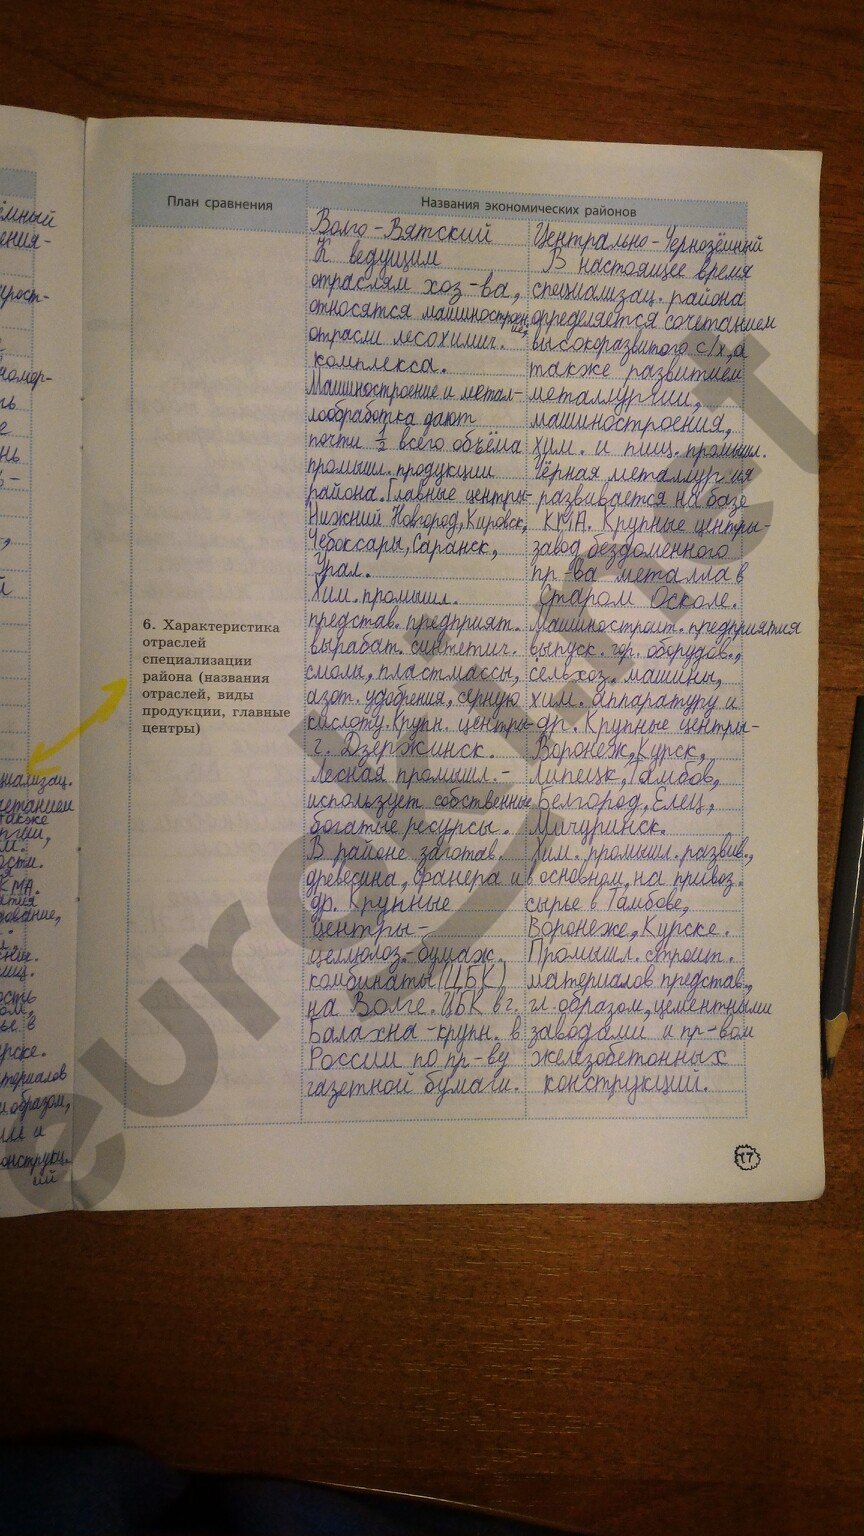 План сравнения
Названия экономических районов
6. Характеристика
отраслей
специализации
района (названия
отраслей, виды
продукции, главные
центры)
Волго-Вятский
К ведущим
отраслям хоз-ва,
относятся машиностроен.,
отрасли лесохимич.
комплекса.
Машиностроение и метал-
лообработка дают
почти ½ всего объёма
промышл. продукции
района. Главные центры-
Нижний Новгород, Кировск,
Чебоксары, Саранск,
Урал.
Хим. промышл.
представ. предприят.
вырабат. синтетич.
смолы, пластмассы,
азот. удобрения, серную
кислоту. Крупн. центры-
г. Дзержинск.
Лесная промышл.-
использует собственные
богатые ресурсы.
В районе заготав.
древесина, фанера и
др. Крупные
центры-
целлюлоз.-бумаж.
комбинаты (ЦБК)
на Волге. ЦБК в г.
Балахна-крупн. в
России по пр-ву
газетной бумаги.
Центрально-Чернозёмный
В настоящее время
специализац. района
определяется сочетанием
высокоразвитого с/х, а
также развитием
металлургии,
машиностроения,
хим. и пищ. промышл.
Чёрная металлургия
развивается на базе
КМА. Крупные центры-
завод бездоменного
пр-ва металла в
Старом Осколе.
Машиностроит. предприятия
выпуск. гр. оборудов.,
сельхоз. машины,
хим. аппаратуру и
др. Крупные центры-
Воронеж, Курск,
Липецк, Тамбов,
Белгород, Елец,
Мичуринск.
Хим. промышл. развив.,
в основном, на привоз.
сырье в Тамбове,
Воронеже, Курске.
Промышл. строит.
материалов представ.,
гл. образом, цементными
заводами и пр-вом
железобетонных
конструкций.
17
eurokl.net